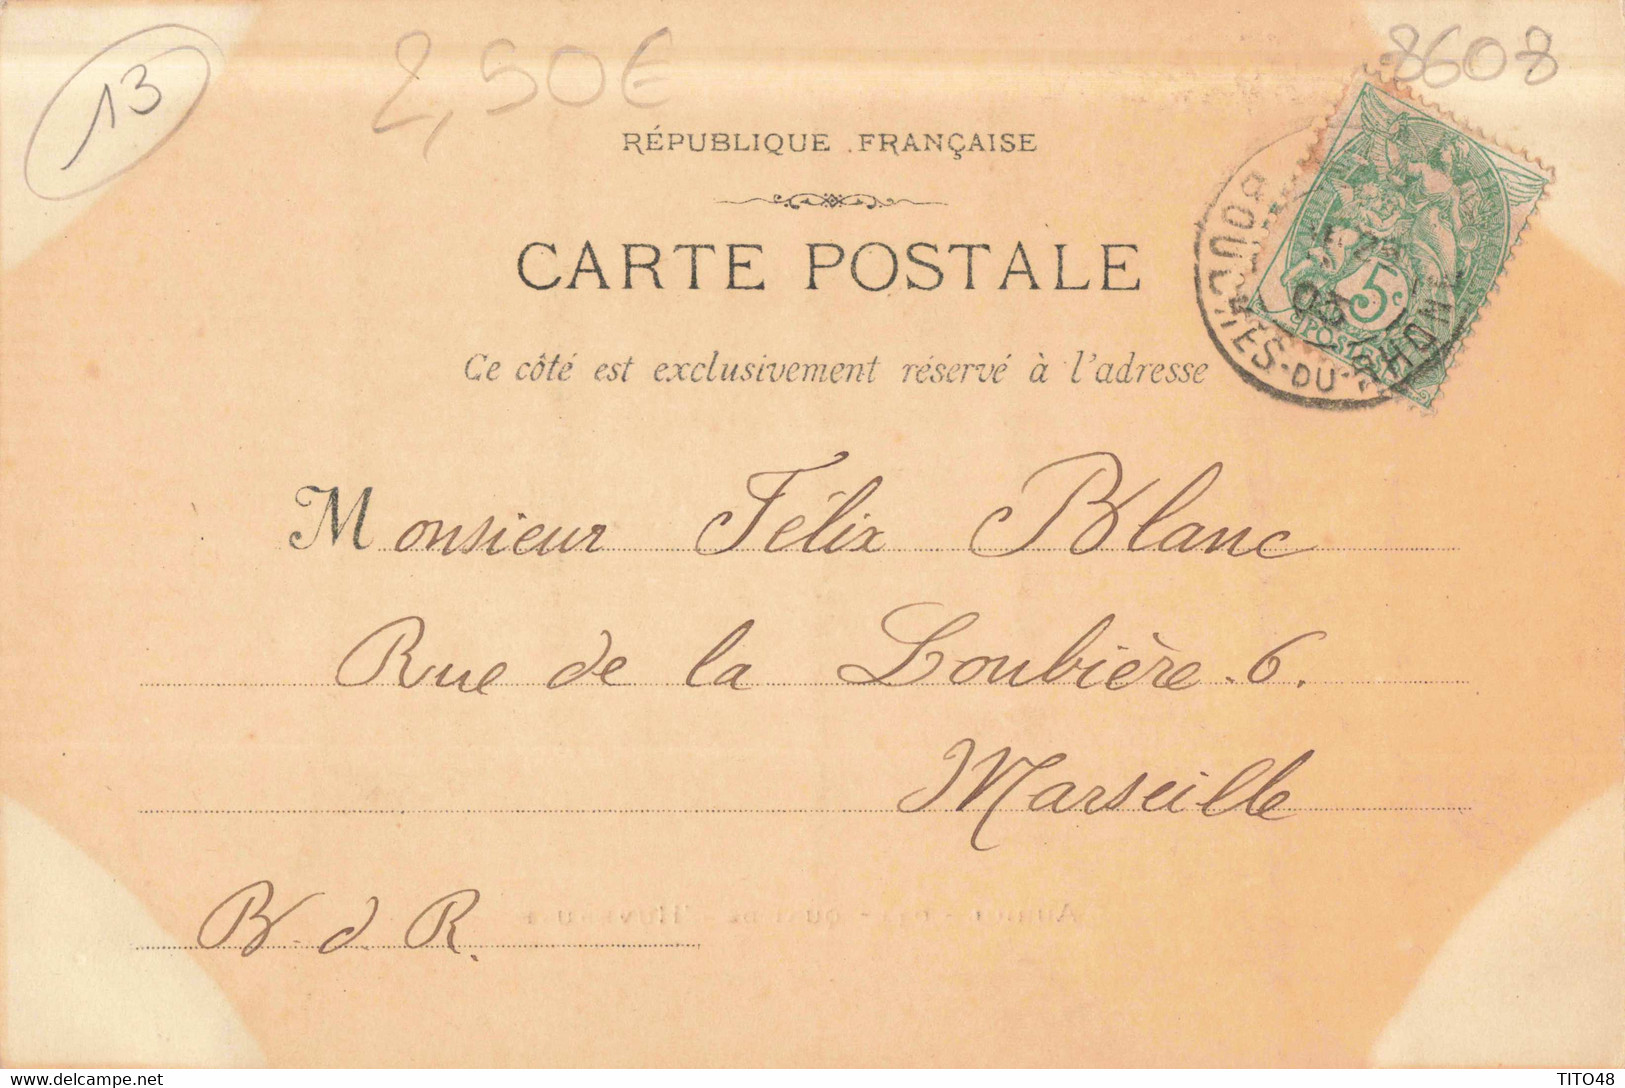 13
2,50€
8608
RÉPUBLIQUE FRANÇAISE
CARTE POSTALE
Ce côté est exclusivement réservé à l'adresse
BOUCHES-DU-RHONE
03
5c
POSTES
Monsieur Félix Blanc
Rue de la Loubière. 6.
Marseille
B. d. R.
TITO48